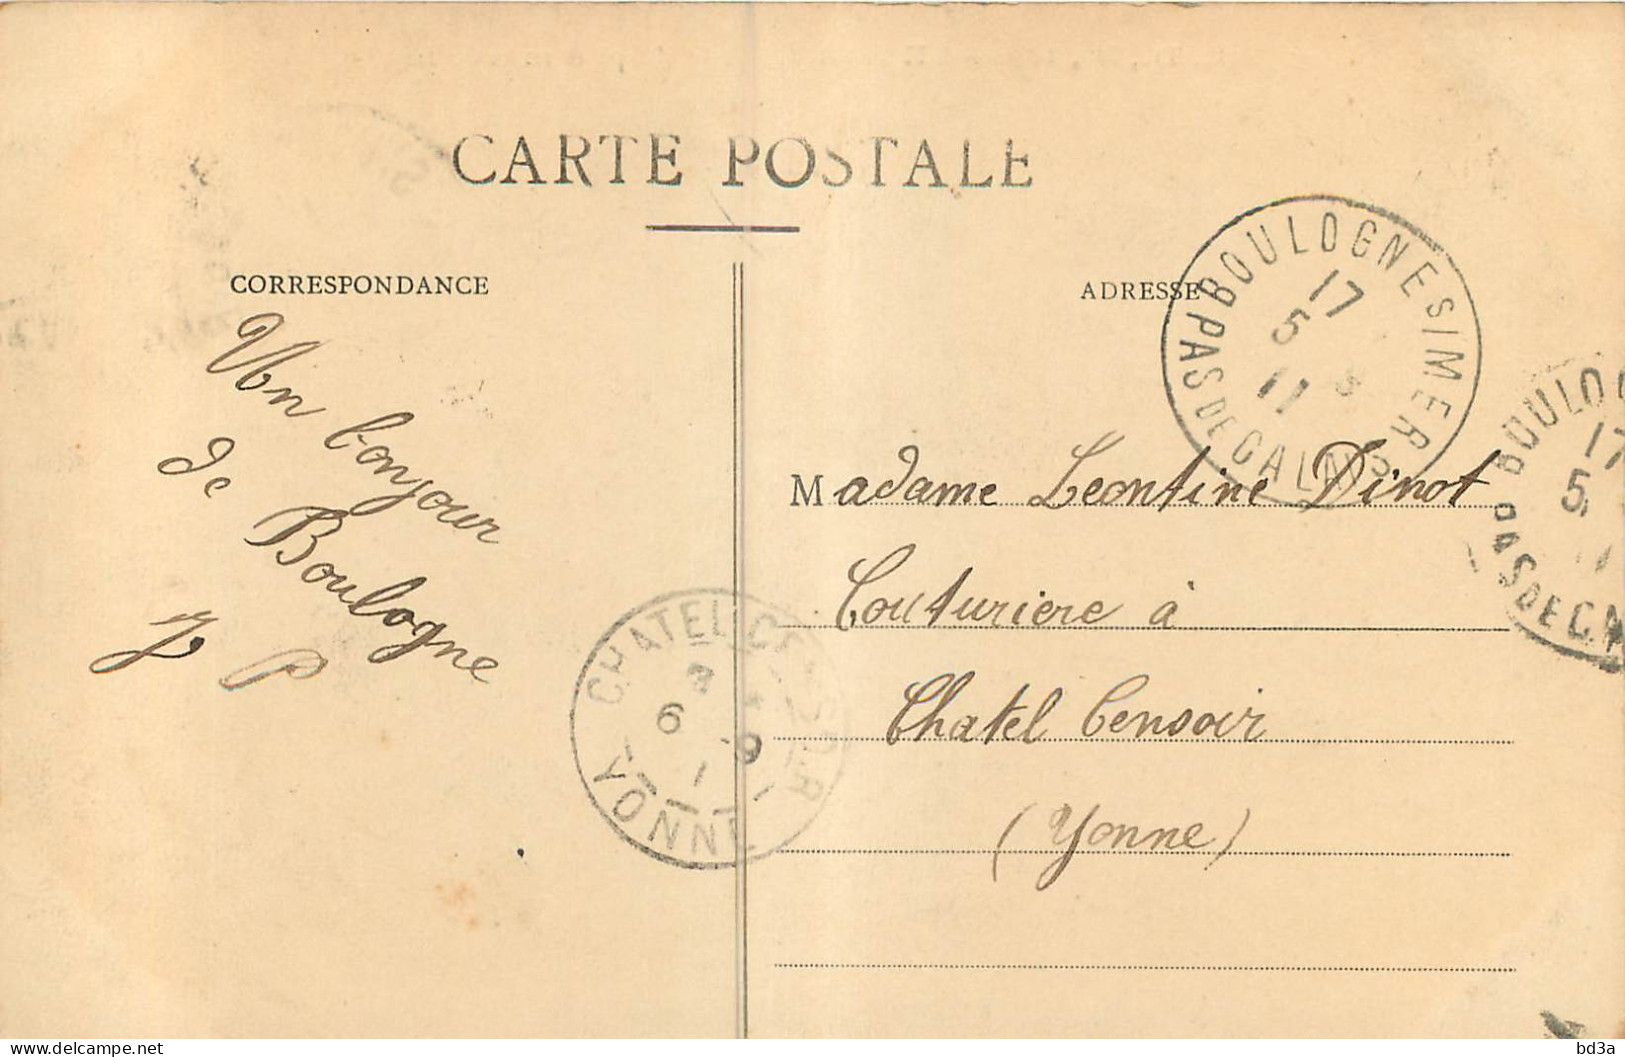 CARTE POSTALE
CORRESPONDANCE
ADRESSE
Un bonjour
de
Boulogne
P
Madame Leontine Dinot
Couturiere à
Chatel Censoir
(Yonne)
BOULOGNE S/MER
PAS DE CALAIS
17
5
11
BOULOG
17
5
PAS DE CA
CHATEL CENSOIR
6
YONNE
delcampe.net
bd3a